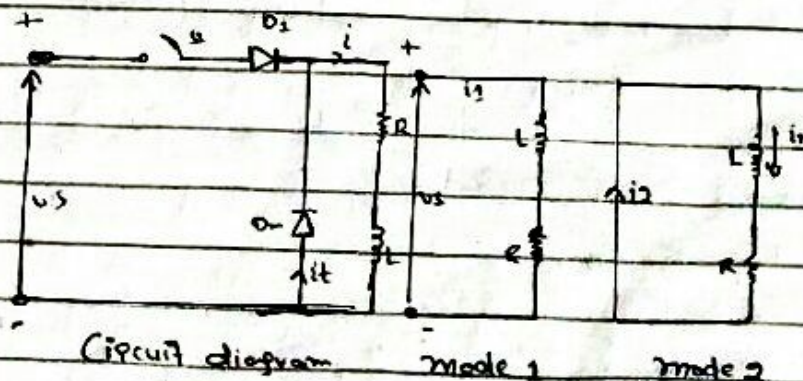 + D1 i +
i1
R L L in
vs vs i2
Dm
it L R R
- -
Circuit diagram mode 1 mode 2